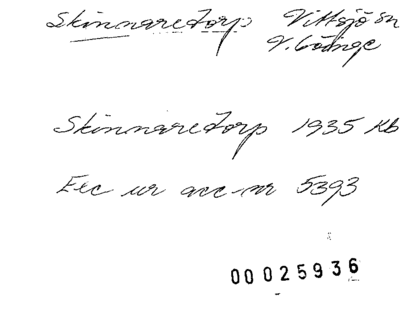 Skinnaretorp Vittsjö sn
V. Göinge
Skinnaretorp 1935 Kb
Exc ur acc-nr 5393
00025936